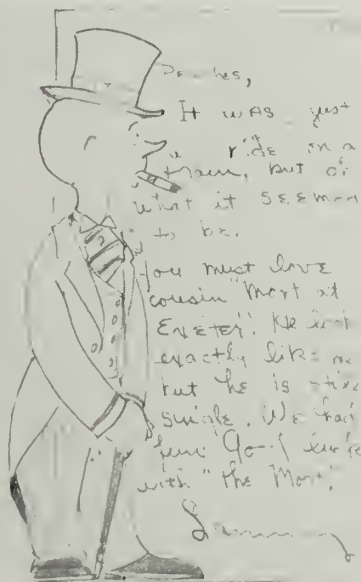 Peaches,
It was just
a ride on a
train, but oh
what it seemed
to be.
You must love
cousin "Mort at
Exeter". He looks
exactly like me
but he is still
single. We had
fun. Good luck
with "the Mort".